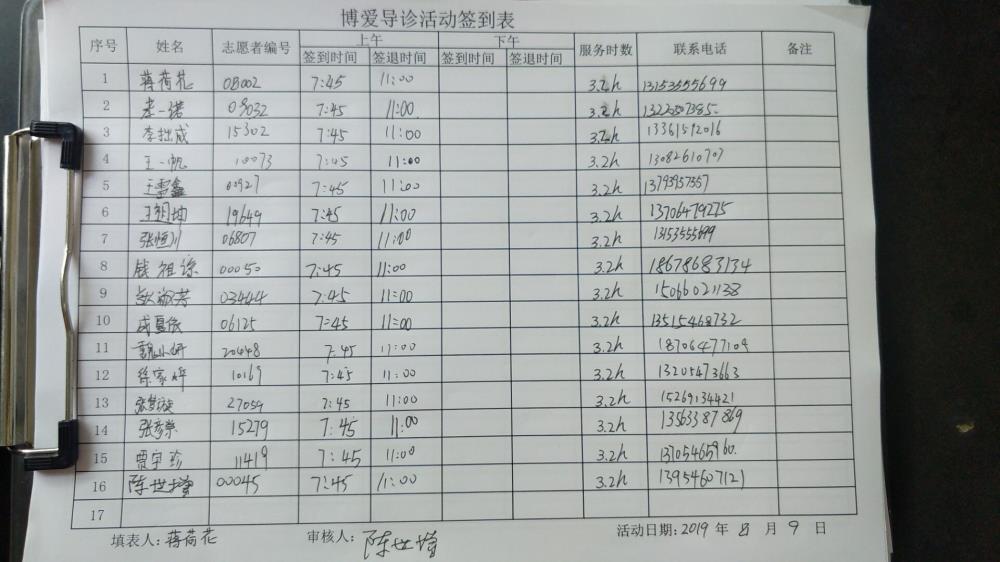 博爱导诊活动签到表
序号 姓名 志愿者编号 上午 下午 服务时数 联系电话 备注
签到时间 签退时间 签到时间 签退时间
1 蒋荷花 08002 7:45 11:00 3.2h 13153555699
2 李一诺 09032 7:45 11:00 3.2h
3 李拙成 15302 7:45 11:00 3.2h 13361512016
4 王一帆 10073 7:45 11:00 3.2h 13082610707
5 王雪鑫 00927 7:45 11:00 3.2h 13793957357
6 王翘坤 19649 7:45 11:00 3.2h 13706479275
7 张恒川 06807 7:45 11:00 3.2h 13153555699
8 钱祖谅 00050 7:45 11:00 3.2h 18678683134
9 赵淑芳 03444 7:45 11:00 3.2h 15066021138
10 成夏依 06125 7:45 11:00 3.2h 13515468732
11 魏小妍 20448 7:45 11:00 3.2h 18706477109
12 徐家婷 10169 7:45 11:00 3.2h 13205473663
13 27059 7:45 11:00 3.2h 15269134421
14 张彦荣 15279 7:45 11:00 3.2h 13563387869
15 贾宇珍 11419 7:45 11:00 3.2h 13705465960
16 陈世增 00045 7:45 11:00 3.2h 13954607121
17
填表人: 蒋荷花 审核人: 陈世增 活动日期: 2019 年 8 月 9 日